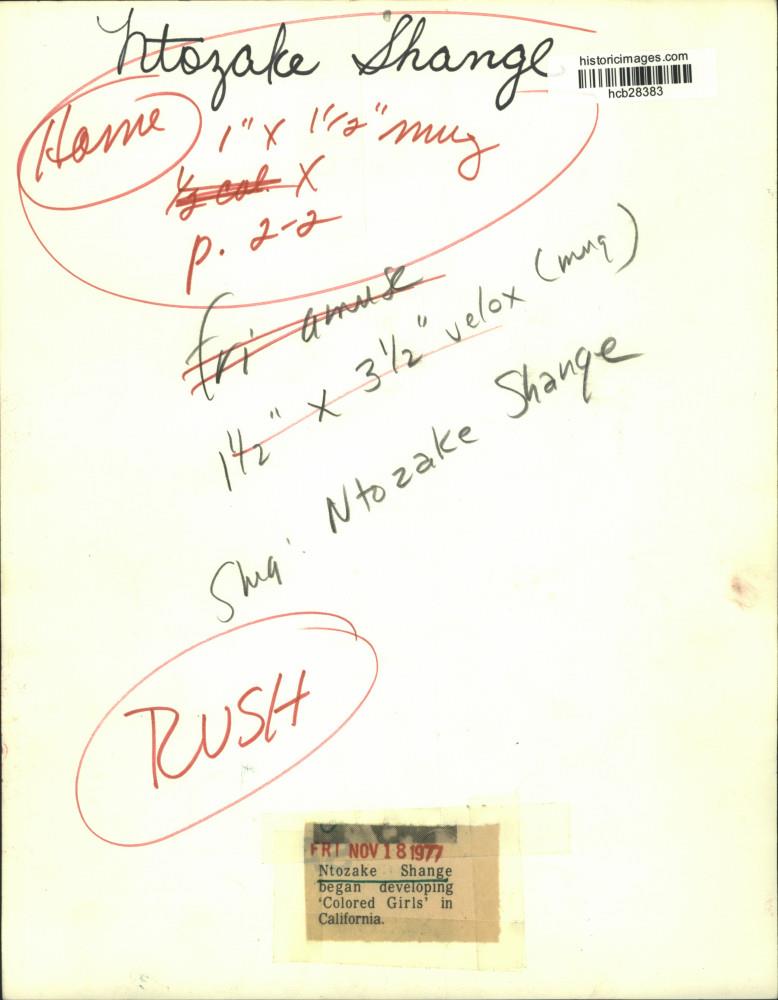 Ntozake Shange
historicimages.com
hcb28383
Home
1" x 1 1/2" mug
1/2 col. X
p. 2-2
fri amuse
1 1/2" x 3 1/2" velox (mug)
Slug: Ntozake Shange
RUSH
FRI NOV 18 1977
Ntozake Shange
began developing
'Colored Girls' in
California.